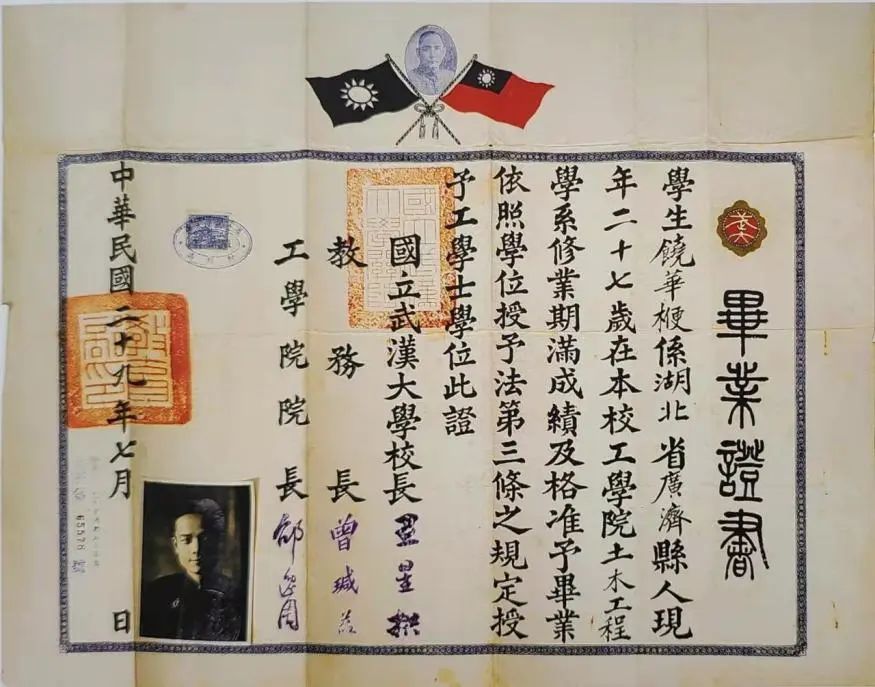 畢業證書
學生饒華楩係湖北省廣濟縣人現
年二十七歲在本校工學院土木工程
學系修業期滿成績及格准予畢業
依照學位授予法第三條之規定授
予工學士學位此證
國立武漢大學校長王星拱
教務長曾瑊益
工學院院長邵逸周
中華民國二十九年七月 日
65576 號